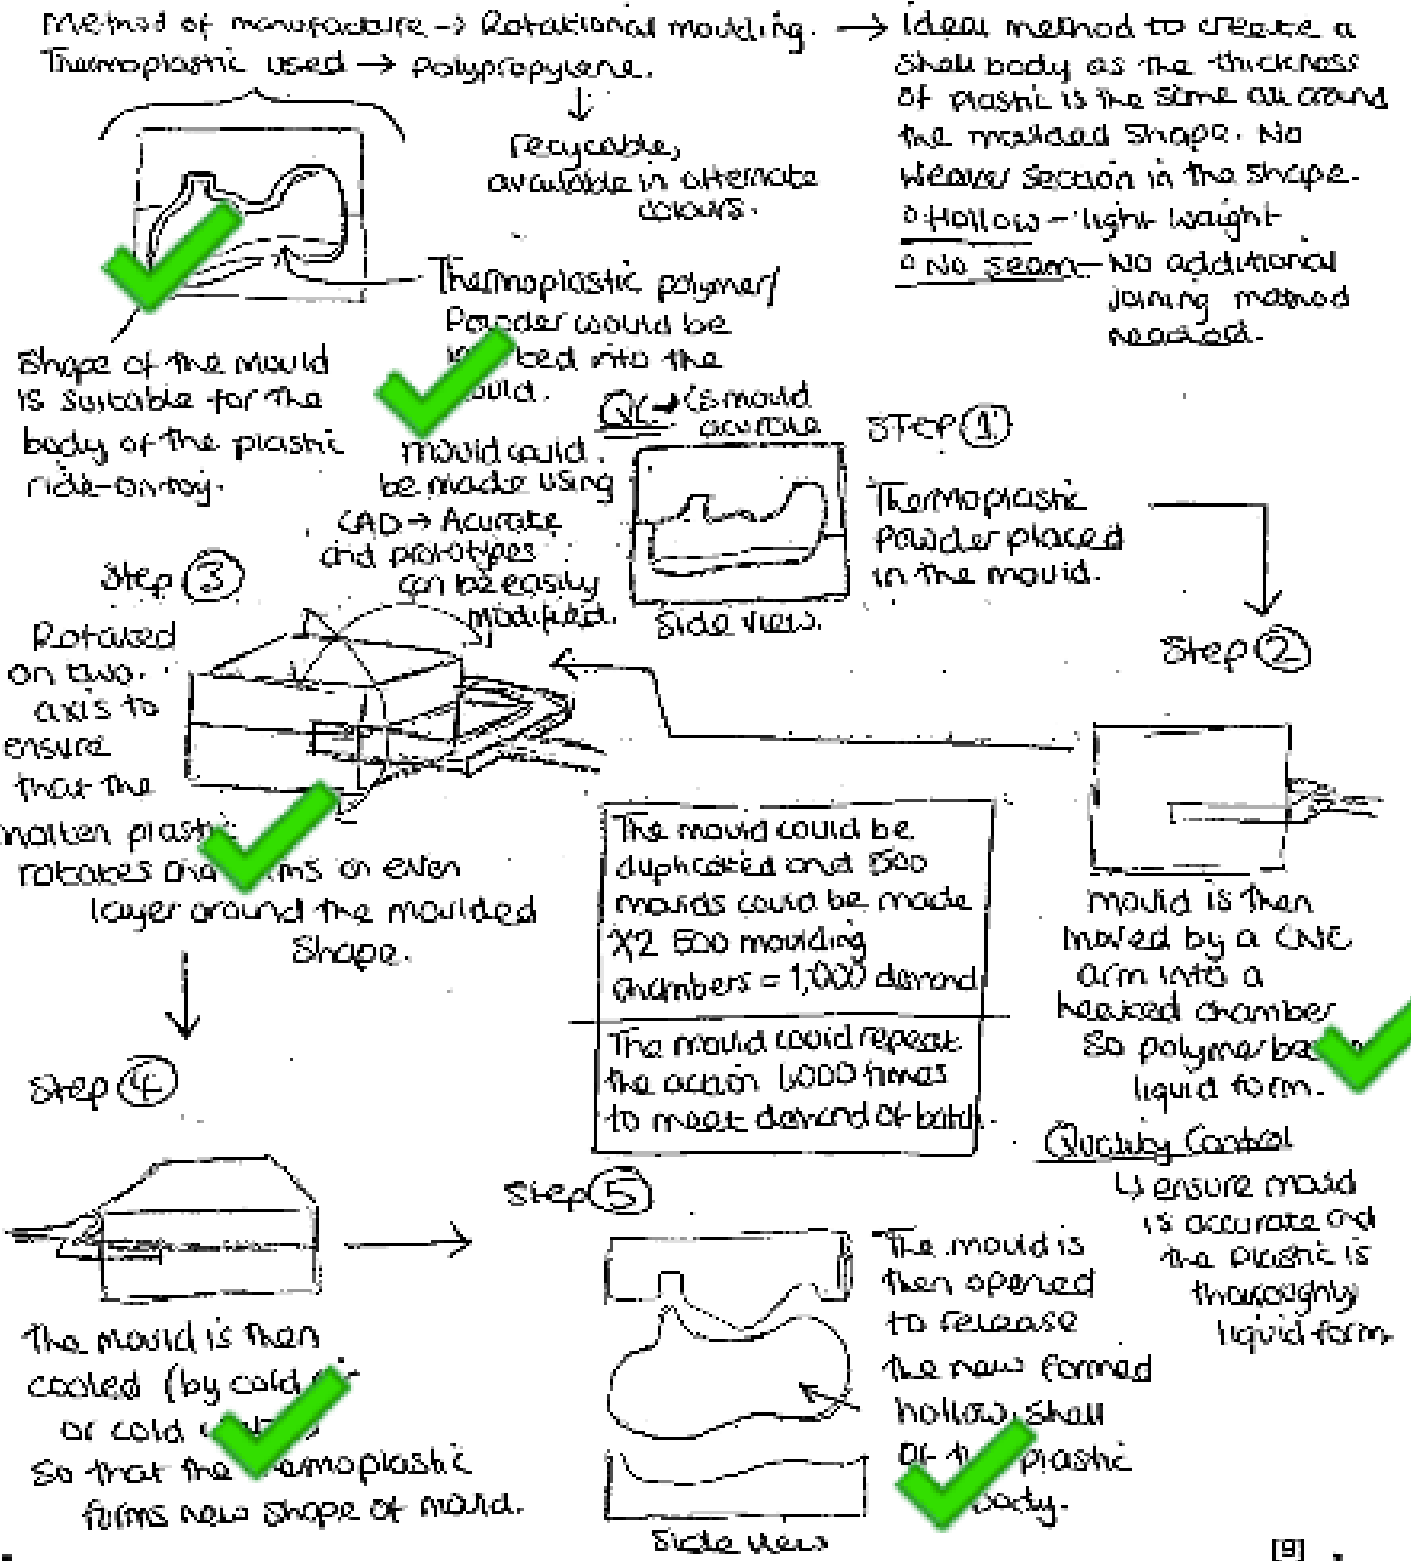 Method of manufacture → Rotational moulding. → Ideal method to create a
Thermoplastic used → Polypropylene.
shell body as the thickness
of plastic is the same all around
the moulded shape. No
weaker section in the shape.
Hollow - light weight
No seam - No additional
joining method
needed.
recycable,
available in alternate
colours.
Thermoplastic polymer/
Powder would be
into the
mould.
Shape of the mould
is suitable for the
body of the plastic
ride-on-toy.
mould could
be made using
CAD → Acurate
and prototypes
can be easily
modified.
QC → is mould
acurate
Side view.
STEP 1
Thermoplastic
Powder placed
in the mould.
Step 2
mould is then
moved by a CNC
arm into a
heated chamber
so polymer
liquid form.
Quality Control
↳ ensure mould
is accurate and
the plastic is
thoroughly
liquid form.
Step 3
Rotated
on two
axis to
ensure
that the
molten plastic
rotates an even
layer around the moulded
shape.
The mould could be
duplicated and 500
moulds could be made
X2 500 moulding
chambers = 1,000 demand
The mould could repeat
the action 1000 times
to meet demand of batch.
Step 4
The mould is then
cooled (by cold
or cold
so that the
forms new shape of mould.
Step 5
The mould is
then opened
to release
the new formed
hollow shell
of the plastic
body.
Side view
[9]